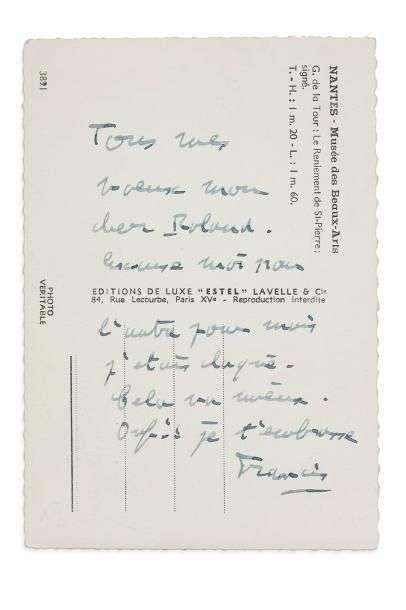 NANTES - Musée des Beaux-Arts
G. de la Tour : Le Reniement de St-Pierre ;
signé.
T. - H. : 1 m. 20 - L. : 1 m. 60.
3891
Tous mes
voeux mon
cher Roland.
Excuse moi pour
EDITIONS DE LUXE "ESTEL" LAVELLE & Cie
84, Rue Lecourbe, Paris XVe - Reproduction Interdite
PHOTO
VÉRITABLE
l'autre jour mais
j'etais claqué.
Cela va mieux.
je t'embrasse
Francis